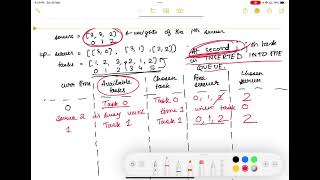 servers = [3, 3, 2] → weights of the ith server
0 1 2
up-server = [[3, 0], [3, 1], [2, 2]]
tasks = [1, 2, 3, 2, 1, 2]
0 1 2 3 4 5
At second i, ith task is INSERTED INTO THE QUEUE.
curr time Available tasks Chosen task Free server Chosen server
0 Task 0 Task 0 0, 1, 2 2
Server 2 is busy until time 1 with task 0
1 Task 1 Task 1 0, 1, 2 2